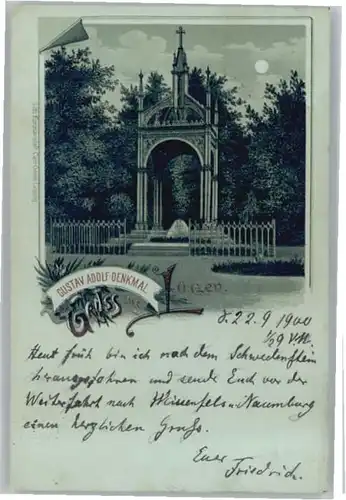 GUSTAV ADOLF-DENKMAL.
Gruss aus Lützen.
d. 22.9.1900
½9 V.M.
Heut früh bin ich nach dem Schwedenstein
herausgefahren und sende Euch vor der
Weiterfahrt nach Weissenfels u. Naumburg
einen herzlichen Gruss.
Euer
Friedrich.